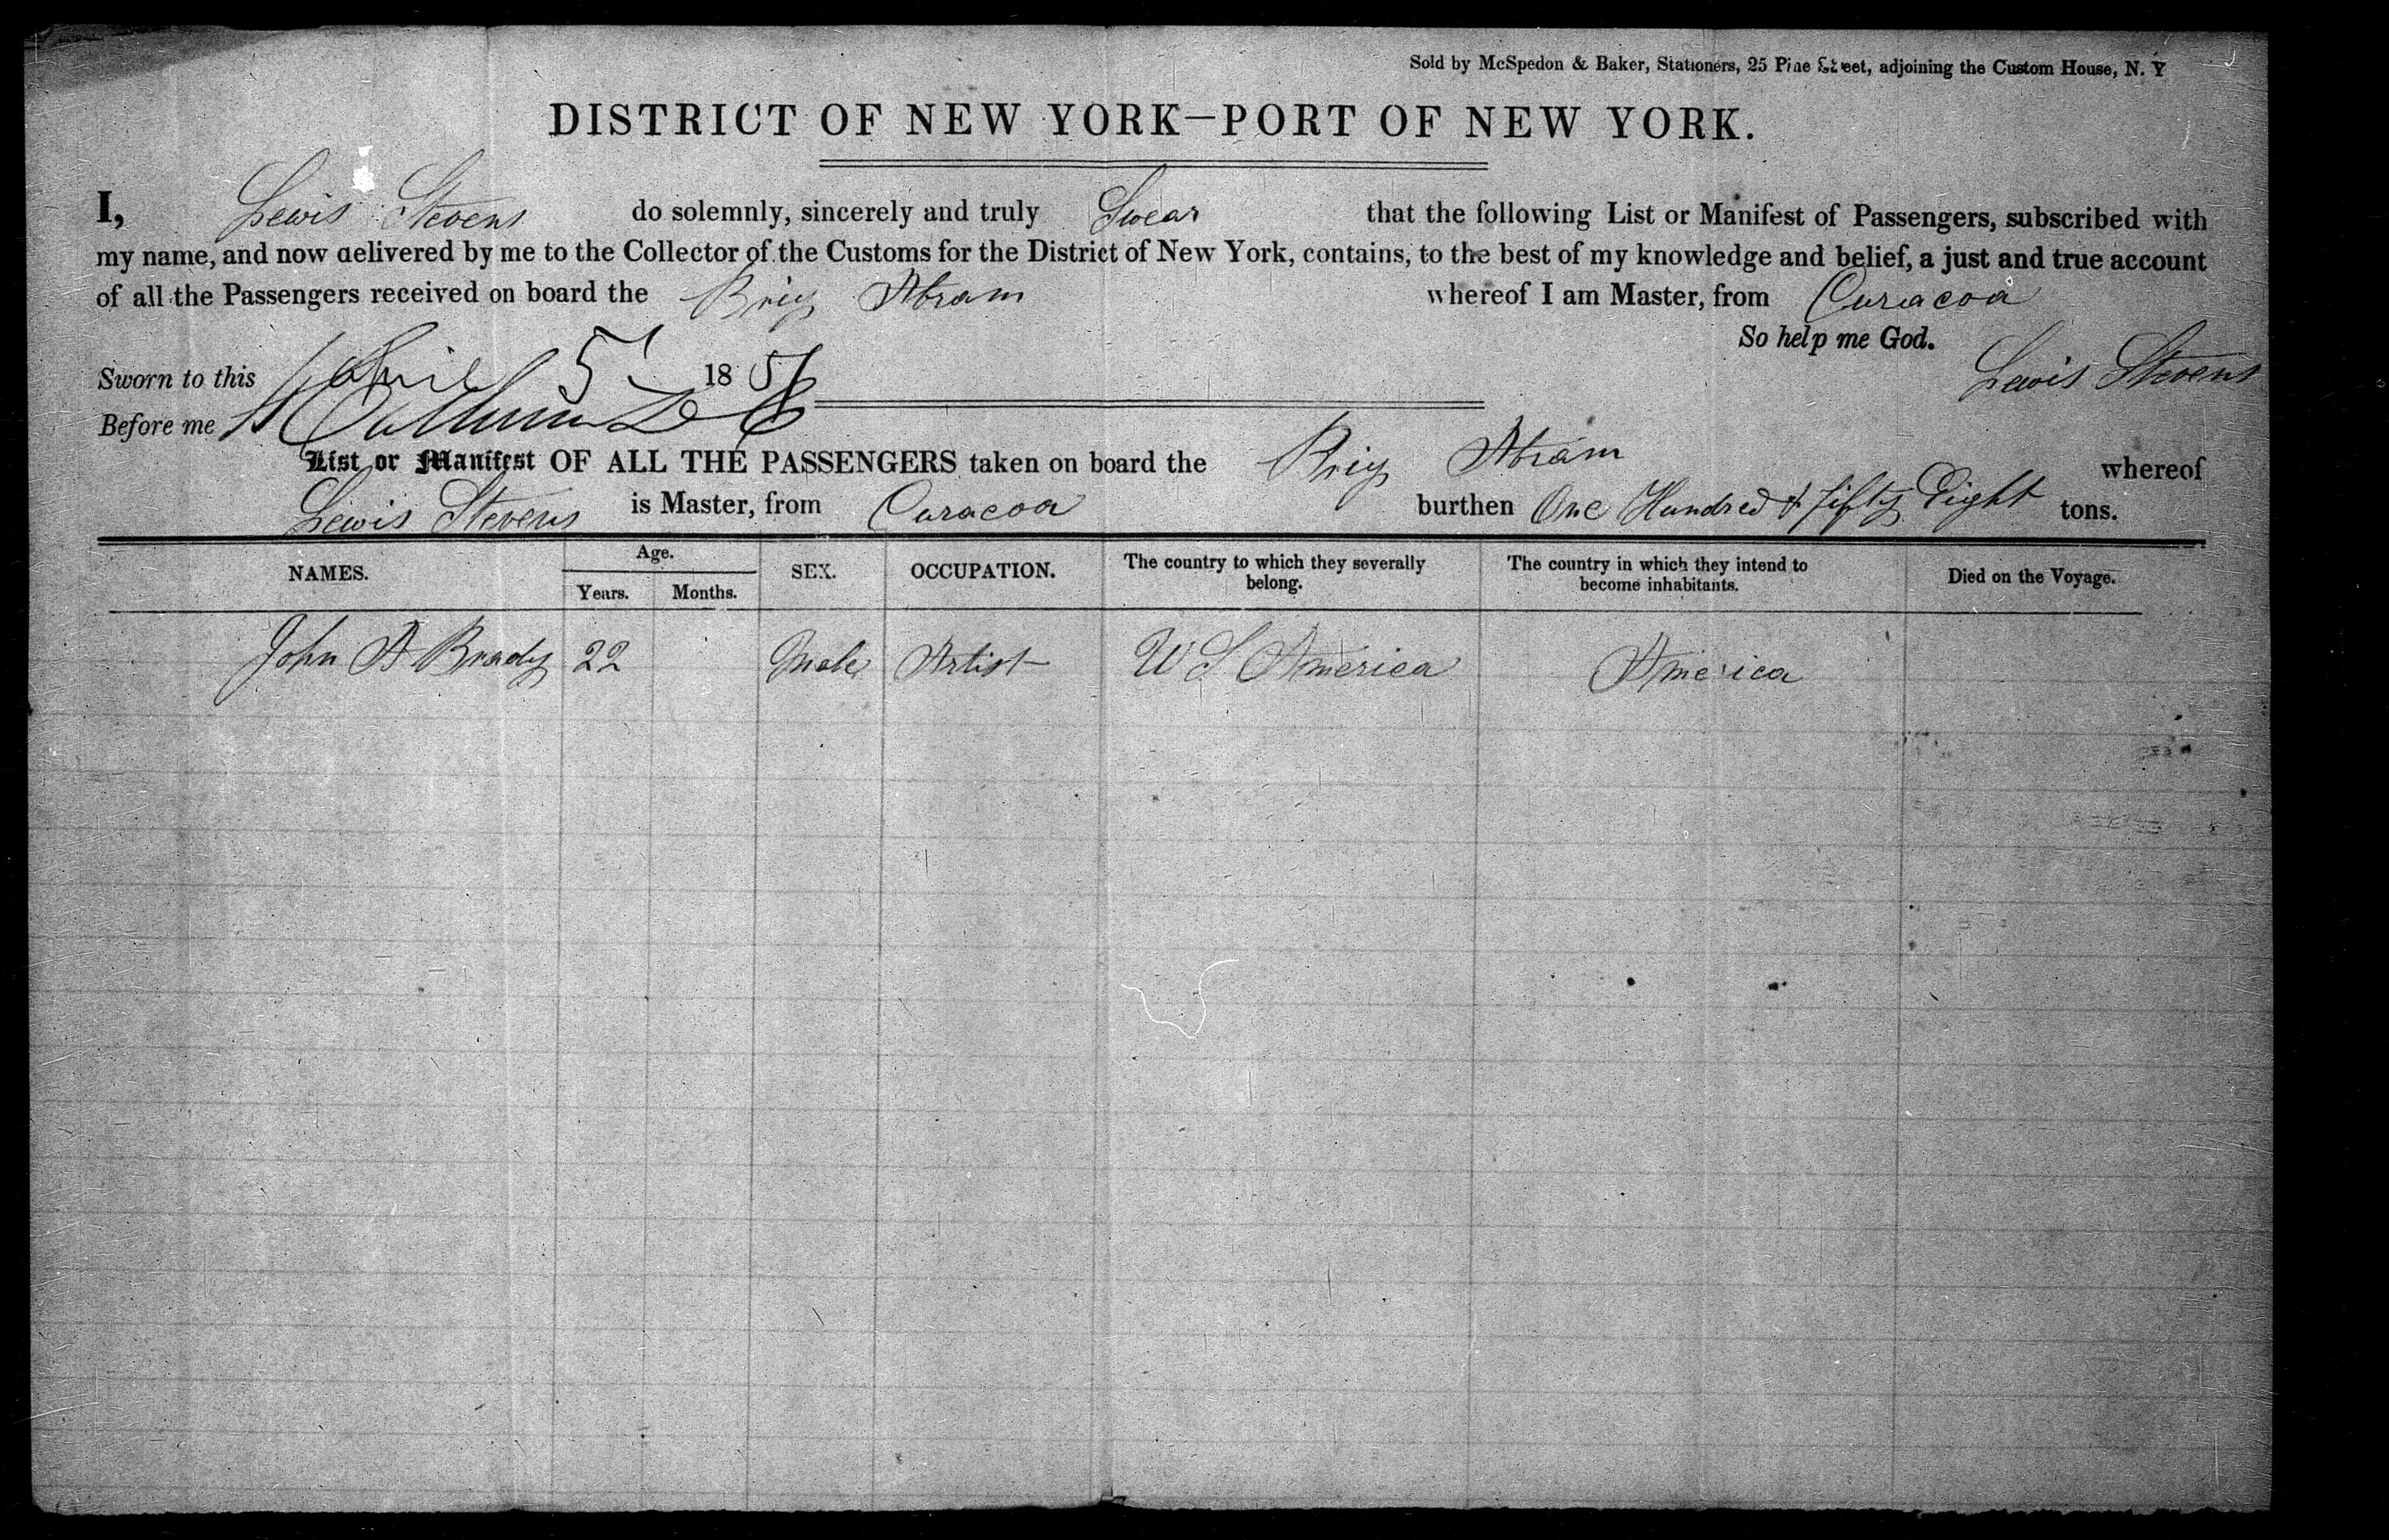 Sold by McSpedon & Baker, Stationers, 25 Pine Street, adjoining the Custom House, N. Y
DISTRICT OF NEW YORK—PORT OF NEW YORK.
I, Lewis Stevens do solemnly, sincerely and truly Swear that the following List or Manifest of Passengers, subscribed with
my name, and now delivered by me to the Collector of the Customs for the District of New York, contains, to the best of my knowledge and belief, a just and true account
of all the Passengers received on board the Brig Abram whereof I am Master, from Curacoa
So help me God.
Sworn to this April 5 1851 Lewis Stevens
Before me
List or Manifest OF ALL THE PASSENGERS taken on board the Brig Abram whereof
Lewis Stevens is Master, from Curacoa burthen One Hundred & fifty Eight tons.
NAMES. Age. Years. Months. SEX. OCCUPATION. The country to which they severally belong. The country in which they intend to become inhabitants. Died on the Voyage.
John A Brady 22 Male Artist U S America America